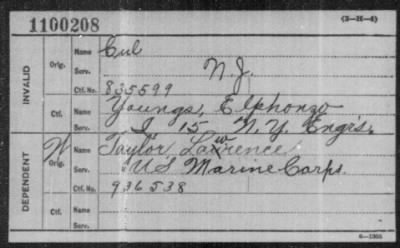 1100208
(3-H-4)
INVALID
Orig.
Name Cul
Serv. N.J.
Ctf. No. 835599
Ctf.
Name Youngs, Elphonzo
Serv. I 15 N.Y. Engrs.
DEPENDENT
W
Orig.
Name Taylor, Lawrence
Serv. U S Marine Corps.
Ctf. No. 936538
Ctf.
Name
Serv.